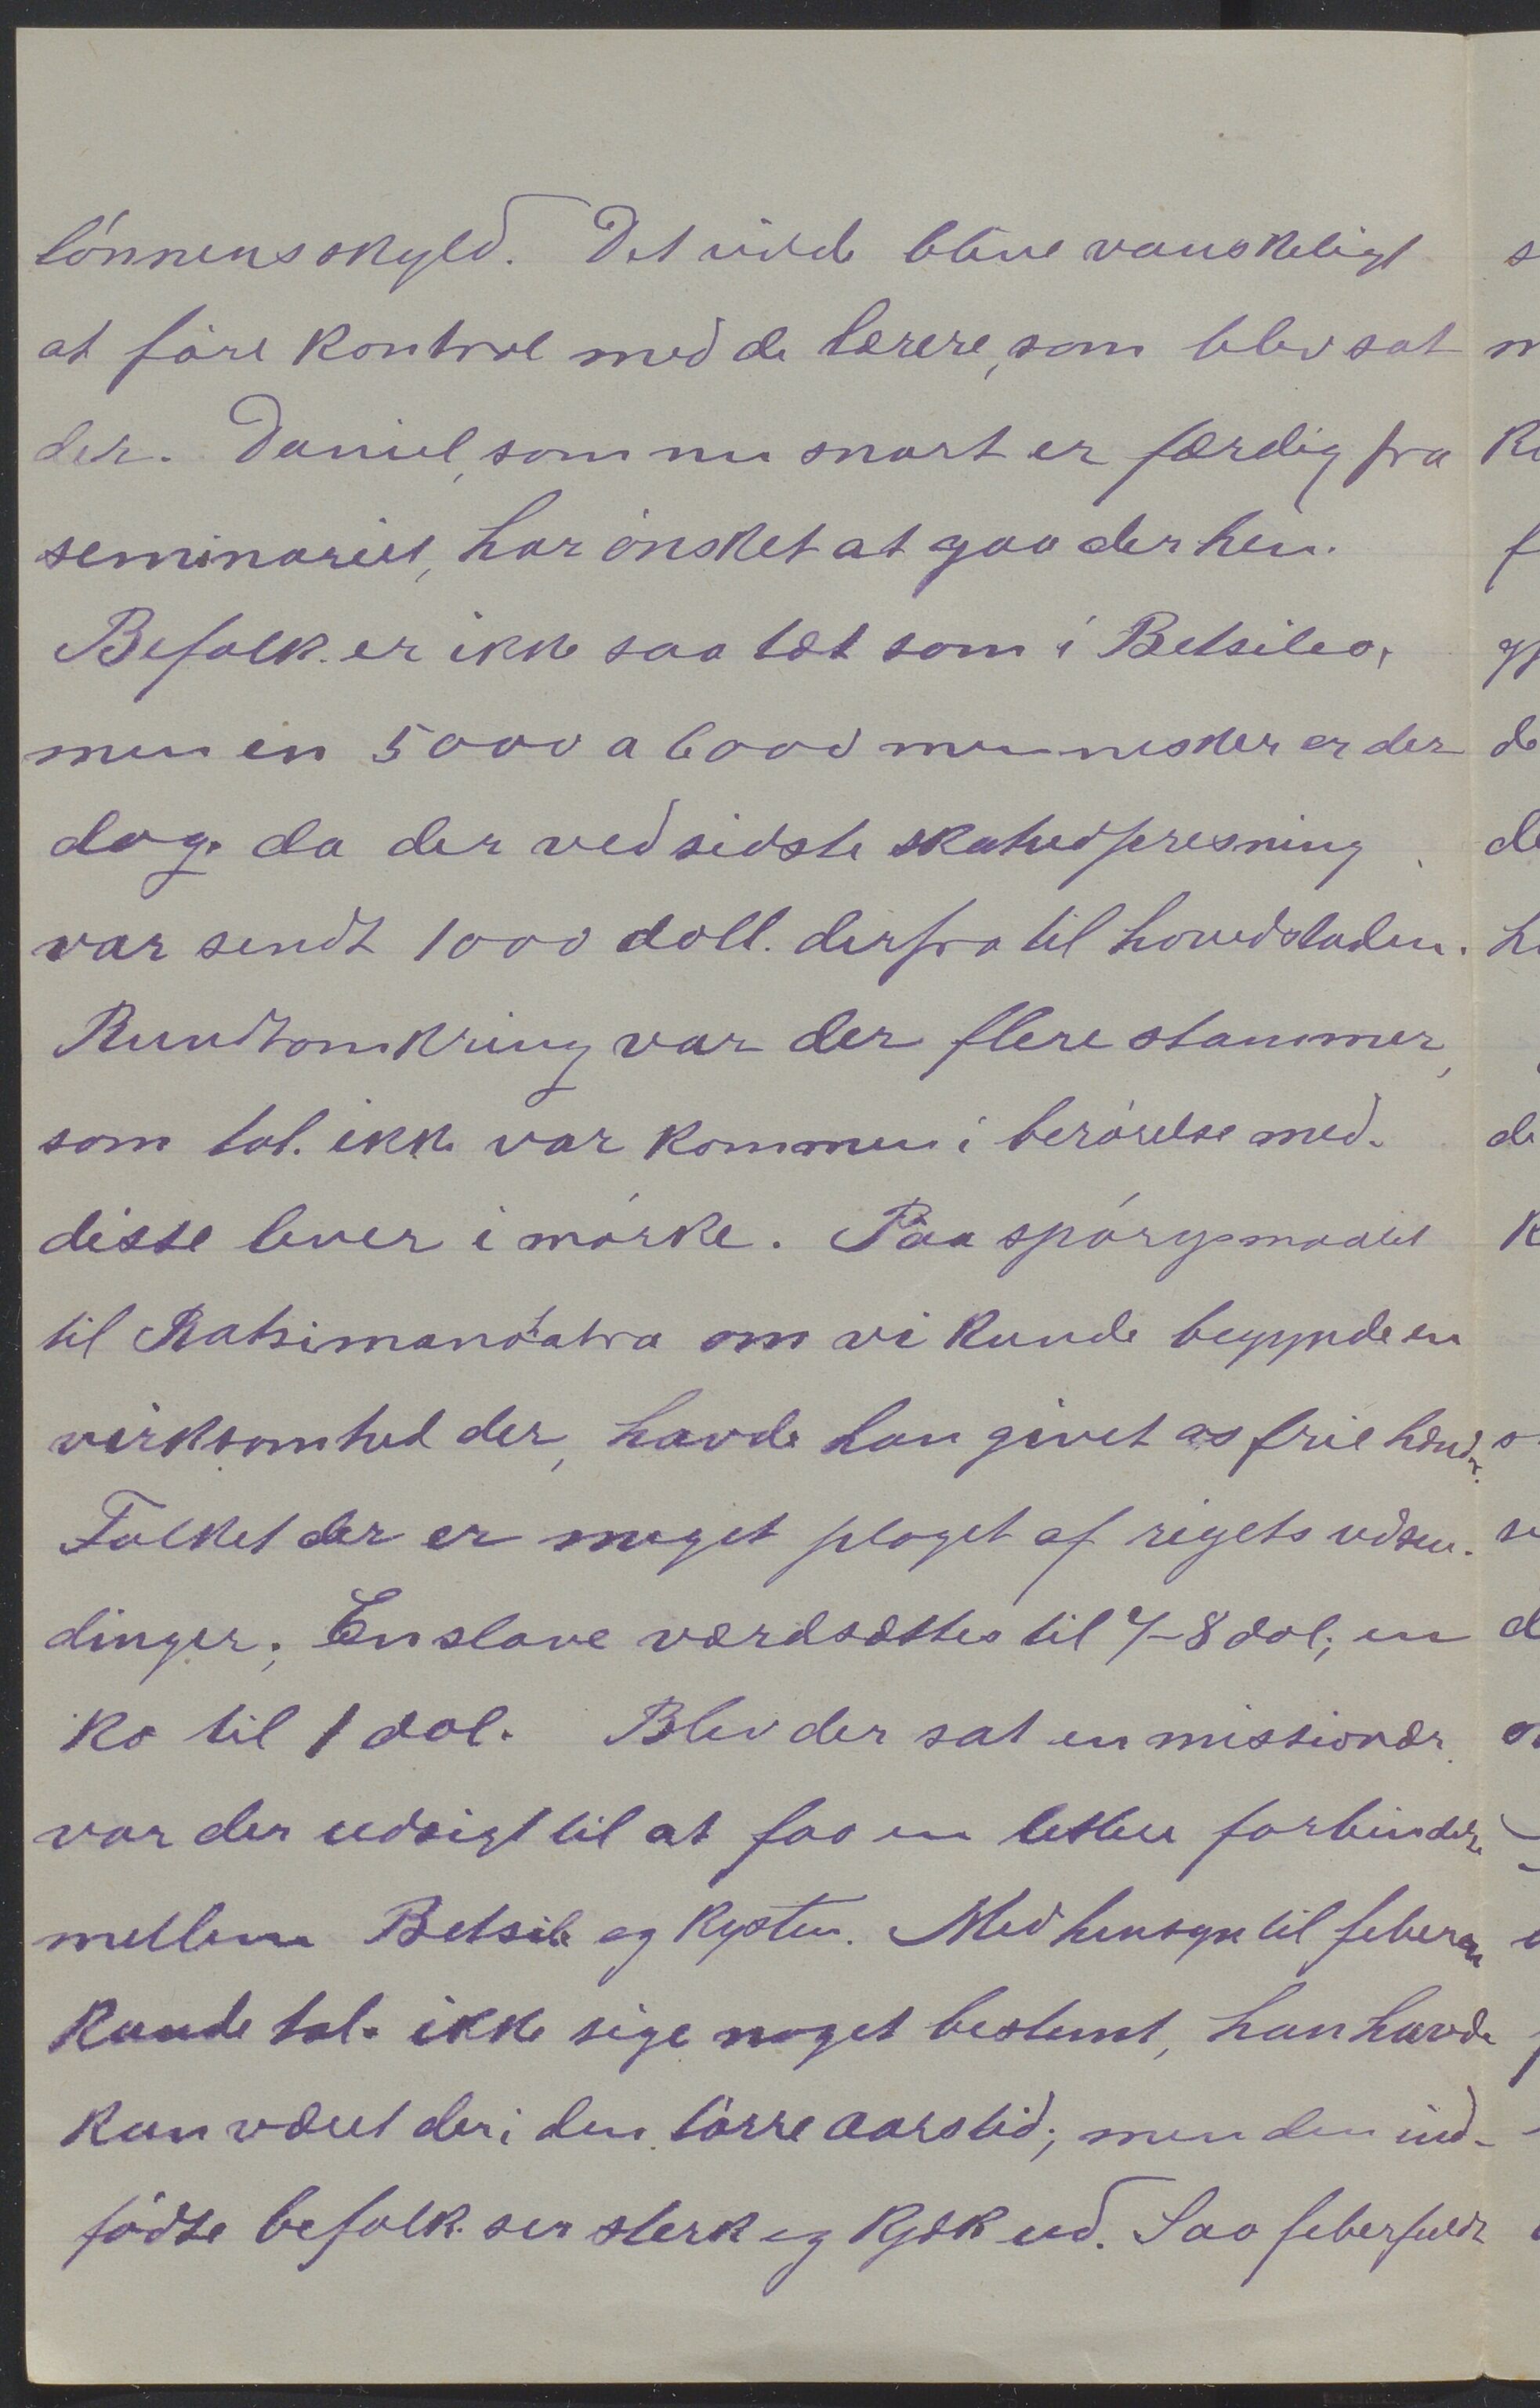 lónnens skyld. Det vilde blive vanskeligt
at fóre kontrol med de lærere, som blev sat
der. Daniel, som nu snart er færdig fra
seminariet, har ónsket at gaa derhen.
Befolk. er ikke saa tæt som i Betsileo,
men en 5000 a 6000 mennesker er der
dog. da der ved sidste skatudpresning
var sendt 1000 doll. derfra til hovedstaden.
Rundtomkring var der flere stammer,
som tal. ikke var kommen i berórelse med.
disse lever i mórke. Paa spórgsmaalet
til Ratsimandatra om vi kunde begynde en
virksomhed der, havde han givet os frie hænd.
Folket der er meget plaget af rigets udsen.
dinger; En slave værdsættes til 7-8 dol; en
ko til 1 dol. Blev der sat en missionær
var der udsigt til at faa en lettere forbindelse
mellem Betsile og kysten. Med hensyn til feberen
kunde tal. ikke sige noget bestemt, han havde
kun været der i den tórre aarstid; men den ind-
fódte befolk. ser sterk og kjæk ud. Saa feberfuldt